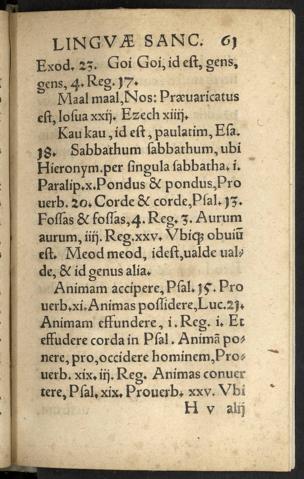 LINGVÆ SANC. 61
Exod. 23. Goi Goi, id est, gens,
gens, 4. Reg. 17.
Maal maal, Nos: Præuaricatus
est, Iosua xxij. Ezech xiiij.
Kau kau, id est, paulatim, Esa.
18. Sabbathum sabbathum, ubi
Hieronym. per singula sabbatha. i.
Paralip. x. Pondus & pondus, Pro
uerb. 20. Corde & corde, Psal. 13.
Fossas & fossas, 4. Reg. 3. Aurum
aurum, iiij. Reg. xxv. Vbiq; obuiũ
est. Meod meod, idest, ualde ual⸗
de, & id genus alia.
Animam accipere, Psal. 15. Pro
uerb. xi. Animas possidere, Luc. 21.
Animam effundere, i. Reg. i. Et
effudere corda in Psal. Animã po⸗
nere, pro, occidere hominem, Pro⸗
uerb. xix. iij. Reg. Animas conuer
tere, Psal. xix. Prouerb. xxv. Vbi
H v alij